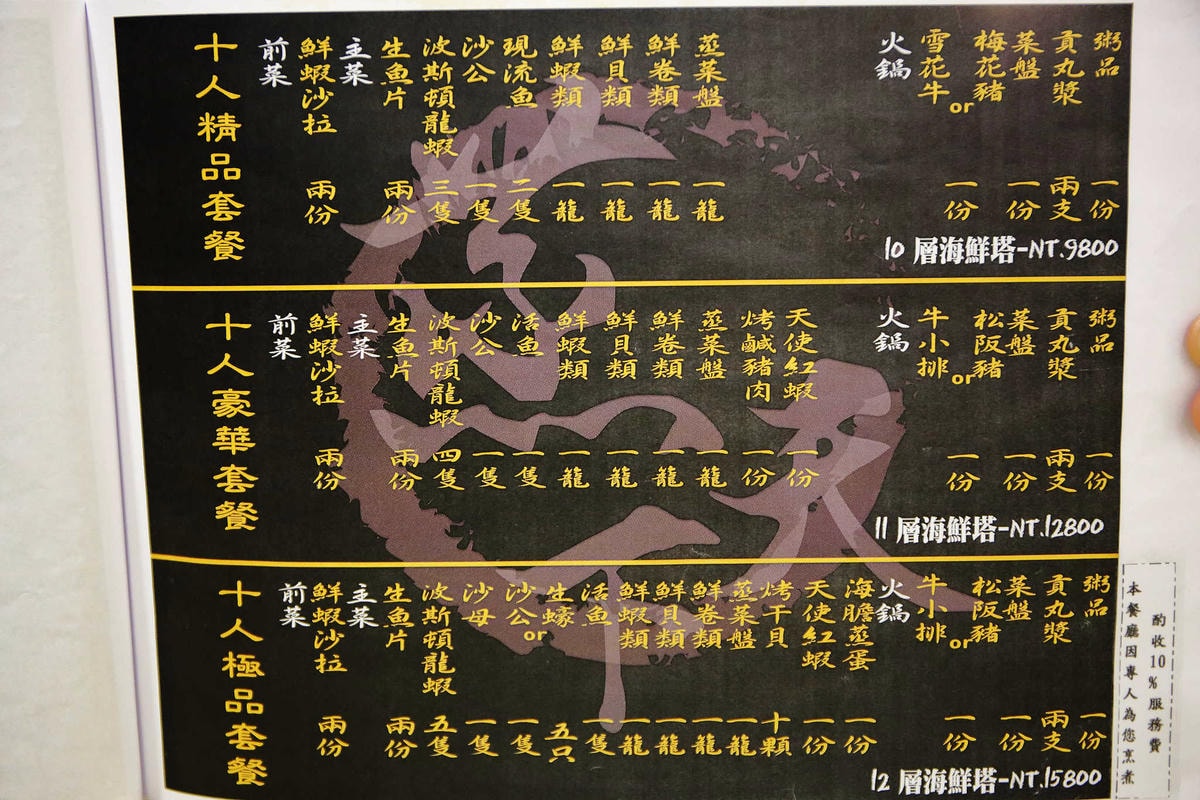 十人精品套餐
前菜
鮮蝦沙拉 兩份
主菜
生魚片 兩份
波斯頓龍蝦 三隻
沙公 一隻
現流魚 二隻
鮮蝦類 一籠
鮮貝類 一籠
鮮卷類 一籠
蒸菜盤 一籠
火鍋
雪花牛 or 梅花豬 一份
菜盤 一份
貢丸漿 兩支
粥品 一份
10 層海鮮塔-NT.9800
十人豪華套餐
前菜
鮮蝦沙拉 兩份
主菜
生魚片 兩份
波斯頓龍蝦 四隻
沙公 一隻
活魚 一隻
鮮蝦類 一籠
鮮貝類 一籠
鮮卷類 一籠
蒸菜盤 一籠
烤鹹豬肉 一份
天使紅蝦 一份
火鍋
牛小排 or 松阪豬 一份
菜盤 一份
貢丸漿 兩支
粥品 一份
11 層海鮮塔-NT.12800
十人極品套餐
前菜
鮮蝦沙拉 兩份
主菜
生魚片 兩份
波斯頓龍蝦 五隻
沙母 一隻
沙公 一隻 or 生蠔 五只
活魚 一隻
鮮蝦類 一籠
鮮貝類 一籠
鮮卷類 一籠
蒸菜盤 一籠
烤干貝 十顆
天使紅蝦 一份
海膽蒸蛋 一份
火鍋
牛小排 or 松阪豬 一份
菜盤 一份
貢丸漿 兩支
粥品 一份
12 層海鮮塔-NT.15800
本餐廳因專人為您烹煮
酌收10%服務費